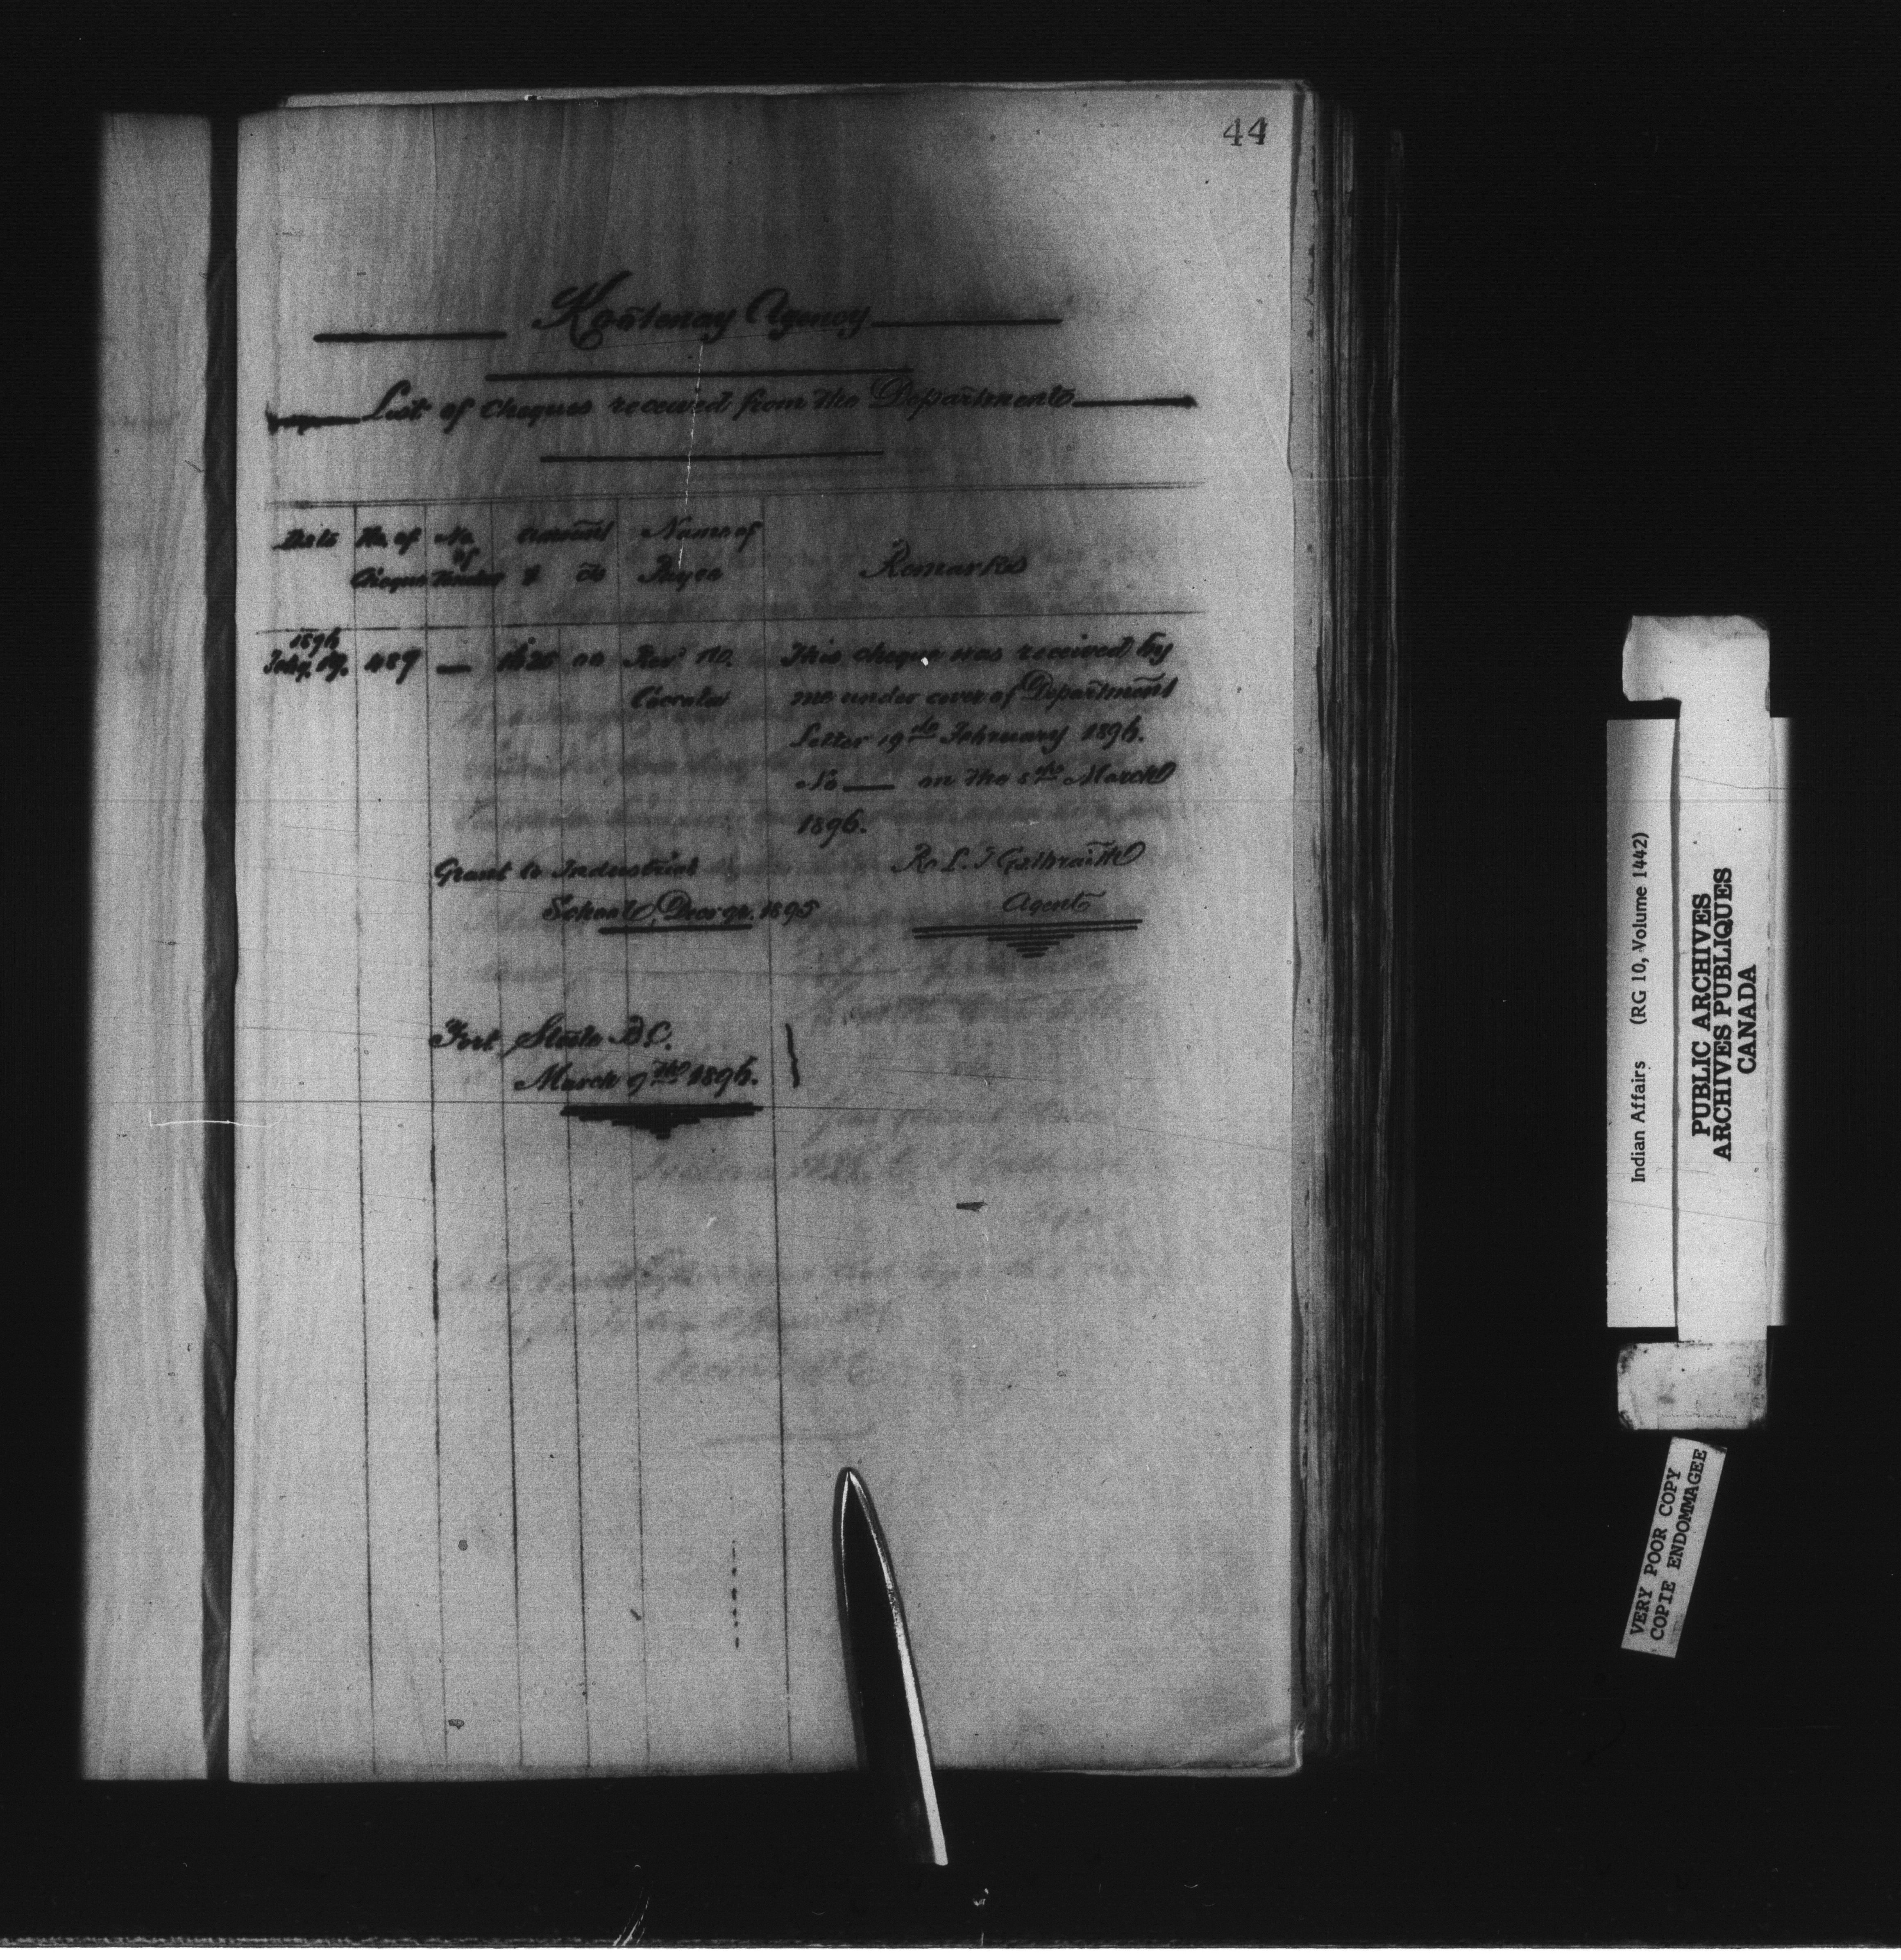 44
Kootenay Agency
List of Cheques received from the Department
Date No. of Cheque No. of Amount $ cts Name of Payee Remarks
1896
Feby. 19. 489 — 1625 00 Revd. N. This cheque was received by
Coccola me under cover of Department
Letter 19th February 1896.
No — on the 5th March
1896.
Grant to Industrial R. L. T. Galbraith
School, Decr qr. 1895 Agent
Fort Steele B.C.
March 9th 1896.
Indian Affairs (RG 10, Volume 1442)
PUBLIC ARCHIVES
ARCHIVES PUBLIQUES
CANADA
VERY POOR COPY
COPIE ENDOMMAGEE